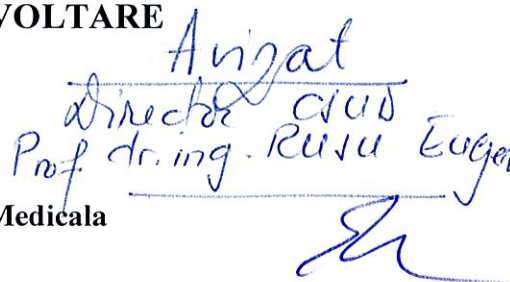 VOLTARE
Avizat
Director CSUD
Prof. dr. ing. RUSU Eugen
Medicala